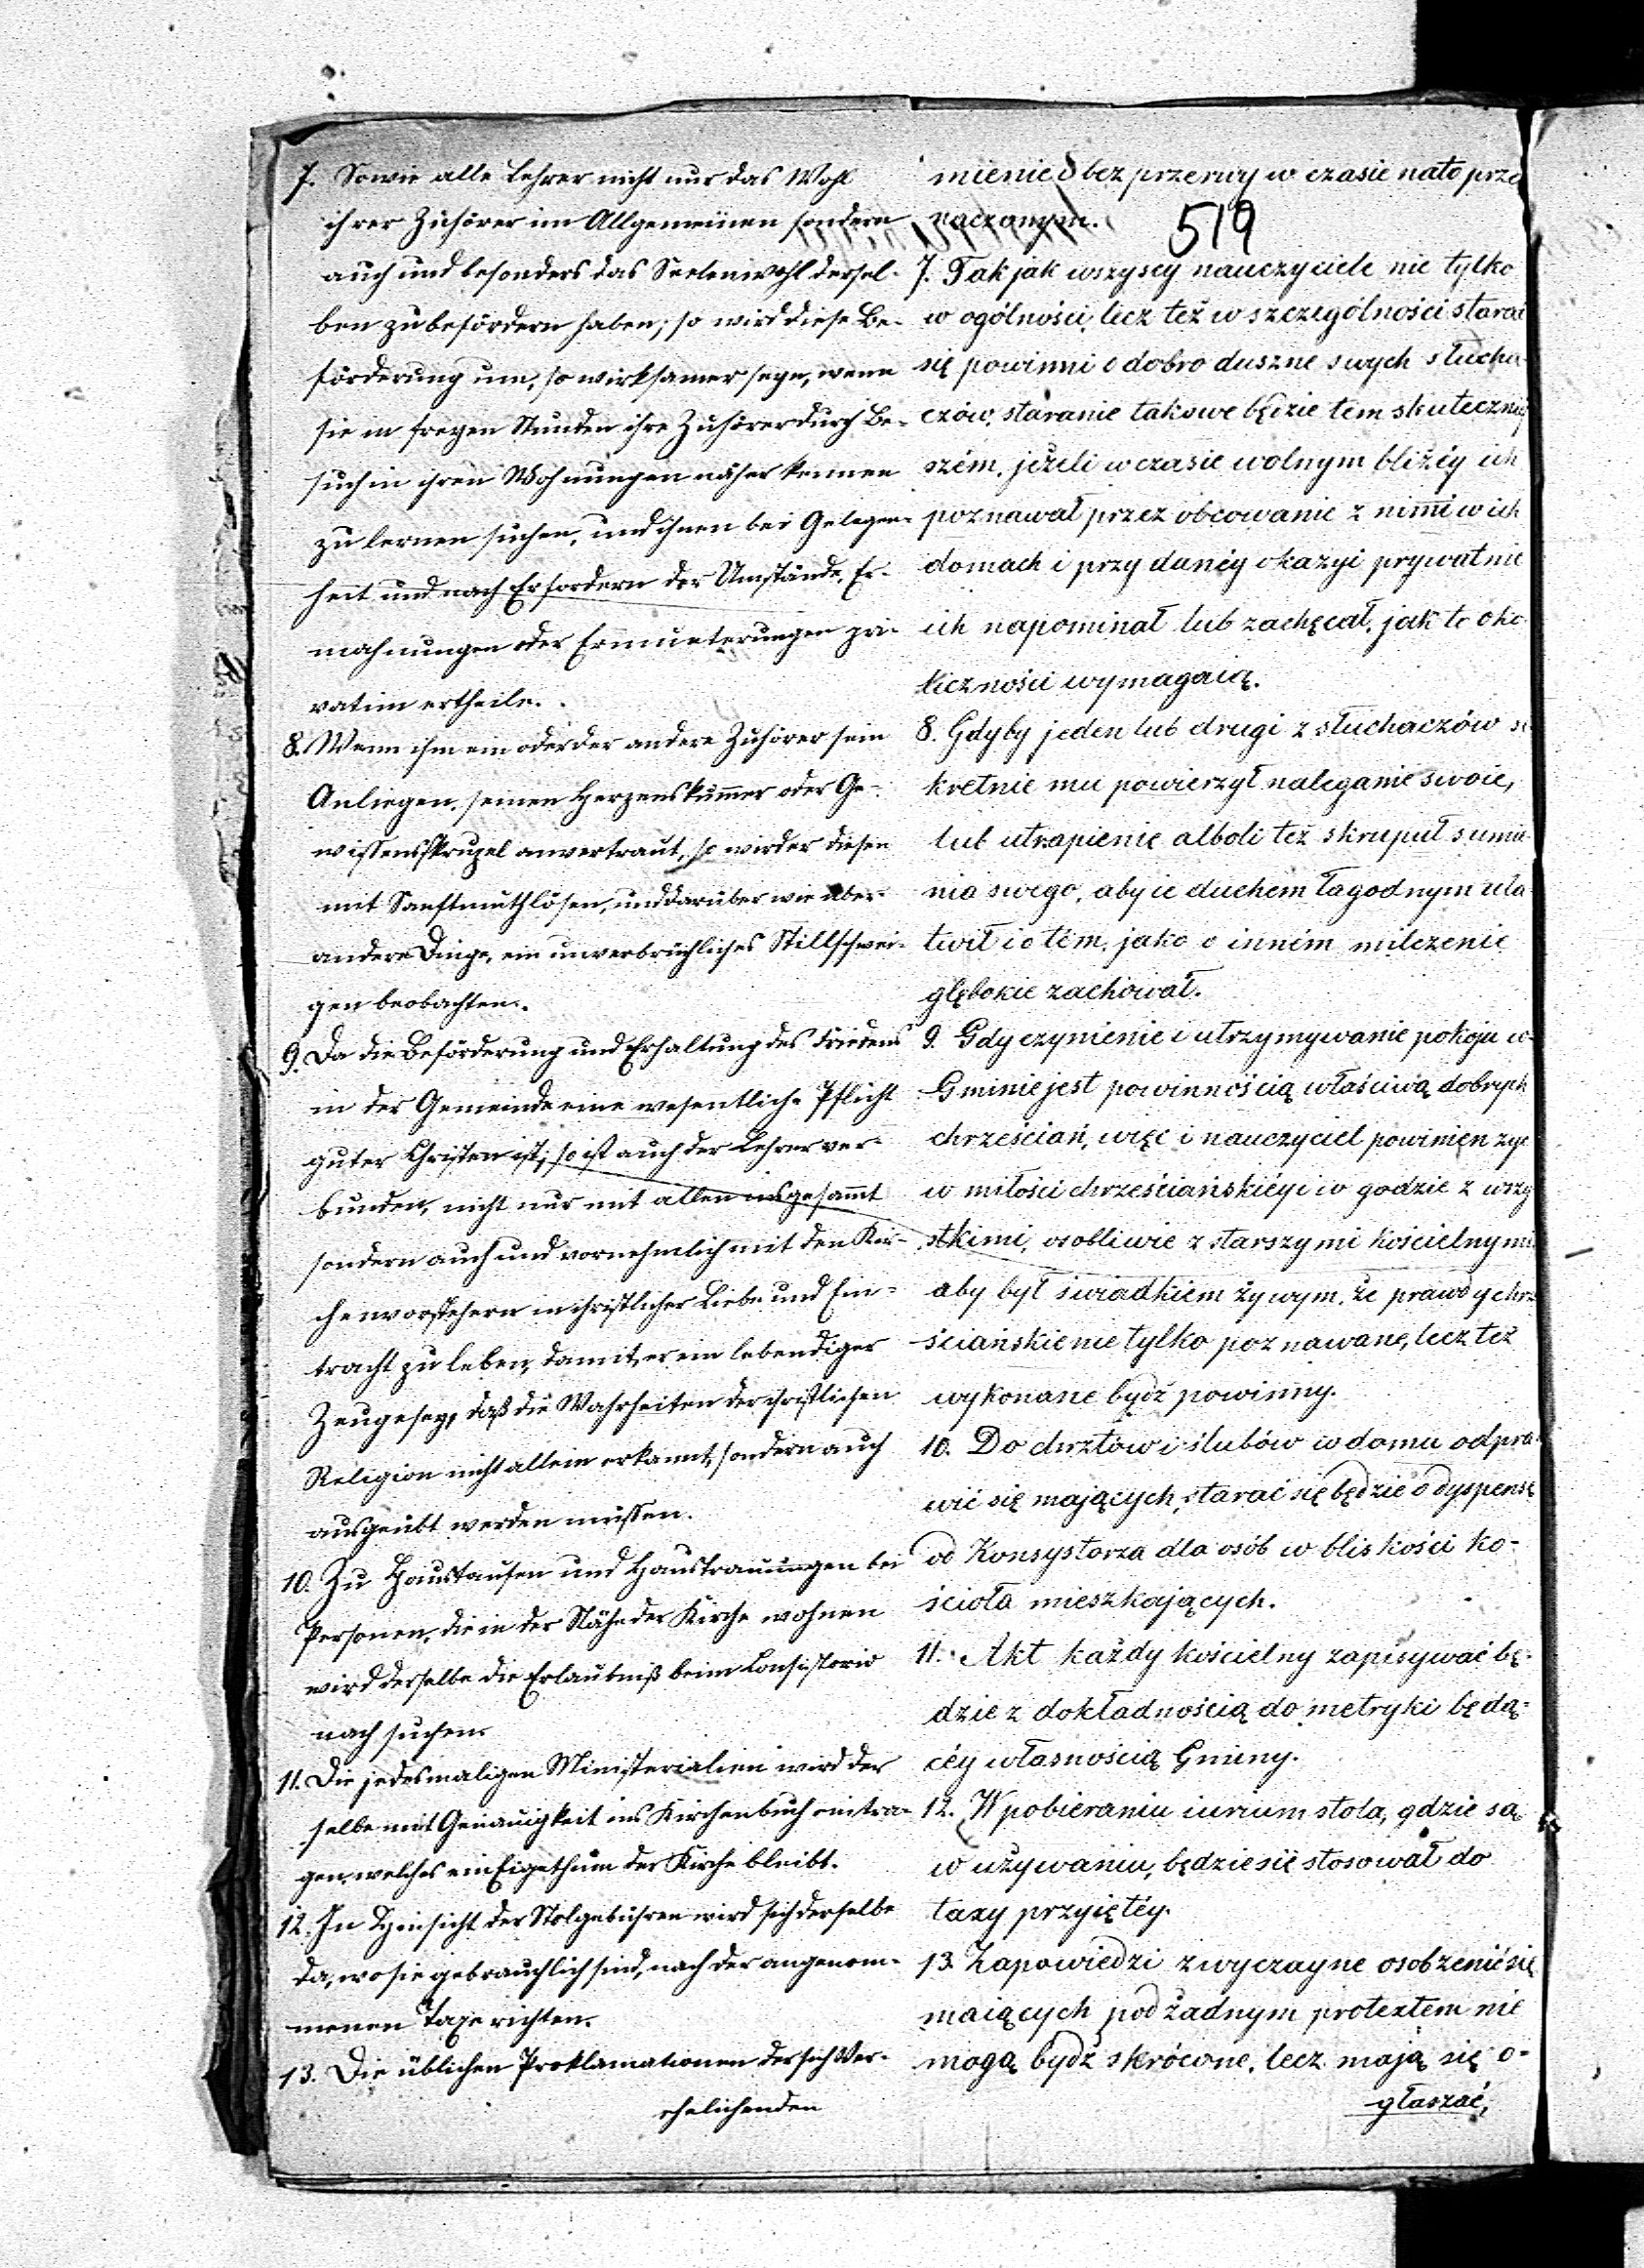 7. Sowie alle Lehrer nicht nur das Wohl
ihrer Zuhörer im Allgemeinen sondern
auch und besonders das Seelenwohl dersel-
ben zu befördern haben; so wird diese Be-
förderung um, so wirksamer seyn, wenn
sie in freyen Stunden ihre Zuhörer durch Be-
such in ihren Wohnungen näher kennen
zu lernen suchen, und ihnen bei Gelegen-
heit und nach Erfordern der Umstände, Er-
mahnungen oder Ermunterungen pri-
vatim ertheile.
8. Wenn ihm ein oder der andere Zuhörer sein
Anliegen, seinen Herzenskummer oder Ge-
wissensskrupel anvertraut, so wird er diesen
mit Sanftmuth lösen, und darüber wie über
andere Dinge, ein unverbrüchliches Stillschwei-
gen beobachten.
9. Da die Beförderung und Erhaltung des Friedens
in der Gemeinde eine wesentliche Pflicht
guter Christen ist, so ist auch der Lehrer ver-
bunden, nicht nur mit allen insgesammt
sondern auch und vornehmlich mit den Kir-
chenvorstehern in christlicher Liebe und Ein-
tracht zu leben, damit, er ein lebendiger
Zeuge sey, daß die Wahrheiten der christlichen
Religion nicht allein erkannt, sondern auch
ausgeübt werden müssen.
10. Zu Haustaufen und Haustrauungen bei
Personen, die in der Nähe der Kirche wohnen
wird derselbe die Erlaubniß beim Consistorio
nach suchen.
11. Die jedesmaligen Ministerialien wird der
selbe mit Genauigkeit ins Kirchenbuch eintra-
gen, welches ein Eigethum der Kirche bleibt.
12. In Hinsicht der Stolgebühren wird sich derselbe
da, wo sie gebräuchlich sind, nach der angenom-
menen Taxe richten.
13. Die üblichen Proklamationen der sich Ver-
ehelichenden
mienie bez przerwy w czasie nato prze
naczonym.
519
7. Tak jak wszyscy nauczyciele nie tylko
w ogólności, lecz też w szczególności starać
się powinni o dobro duszne swych słucha-
czów, staranie takowe będzie tem skuteczniey
szém, jeżeli w czasie wolnym bliżéy ich
poznawał przez obcowanie z nimi w ich
domach i przy danéy okazyi prywatnie
ich napominał lub zachęcał, jak to oko
liczności wymagaią.
8. Gdyby jeden lub drugi z słuchaczów se
kretnie mu powierzył naleganie swoie,
lub utrapienie alboli też skrupuł sumie
nia swego, aby ie duchem łagodnym uła
twił i o tém, jako o inném milczenie
głębokie zachował.
9. Gdy czynienie i utrzymywanie pokoju w
Gminie jest powinnością właściwą dobrych
chrześcian, więc i nauczyciel powinien żyć
w miłości chrześciańskiéy i w godzie z wszy
stkimi, osobliwie z starszymi kościelnymi
aby był świadkiem żywym, że prawdy chrze
ściańskie nie tylko poznawane, lecz też
wykonane bydź powinny.
10. Do chrztów i ślubów w domu odpra
wić się mających, starać się będzie o dyspensę
od Konsystorza dla osób w bliskości ko-
ścioła mieszkających.
11. Akt każdy kościelny zapisywać bę-
dzie z dokładnością do metryki będą-
céy własnością Gminy.
12. W pobieraniu iurium stola, gdzie są
w używaniu, będzie się stosował do
taxy przyiętéy.
13. Zapowiedzi zwyczayne osob żenić się
maiących pod żadnym protextem nie
mogą bydź skrócone, lecz mają się o-
głaszać,